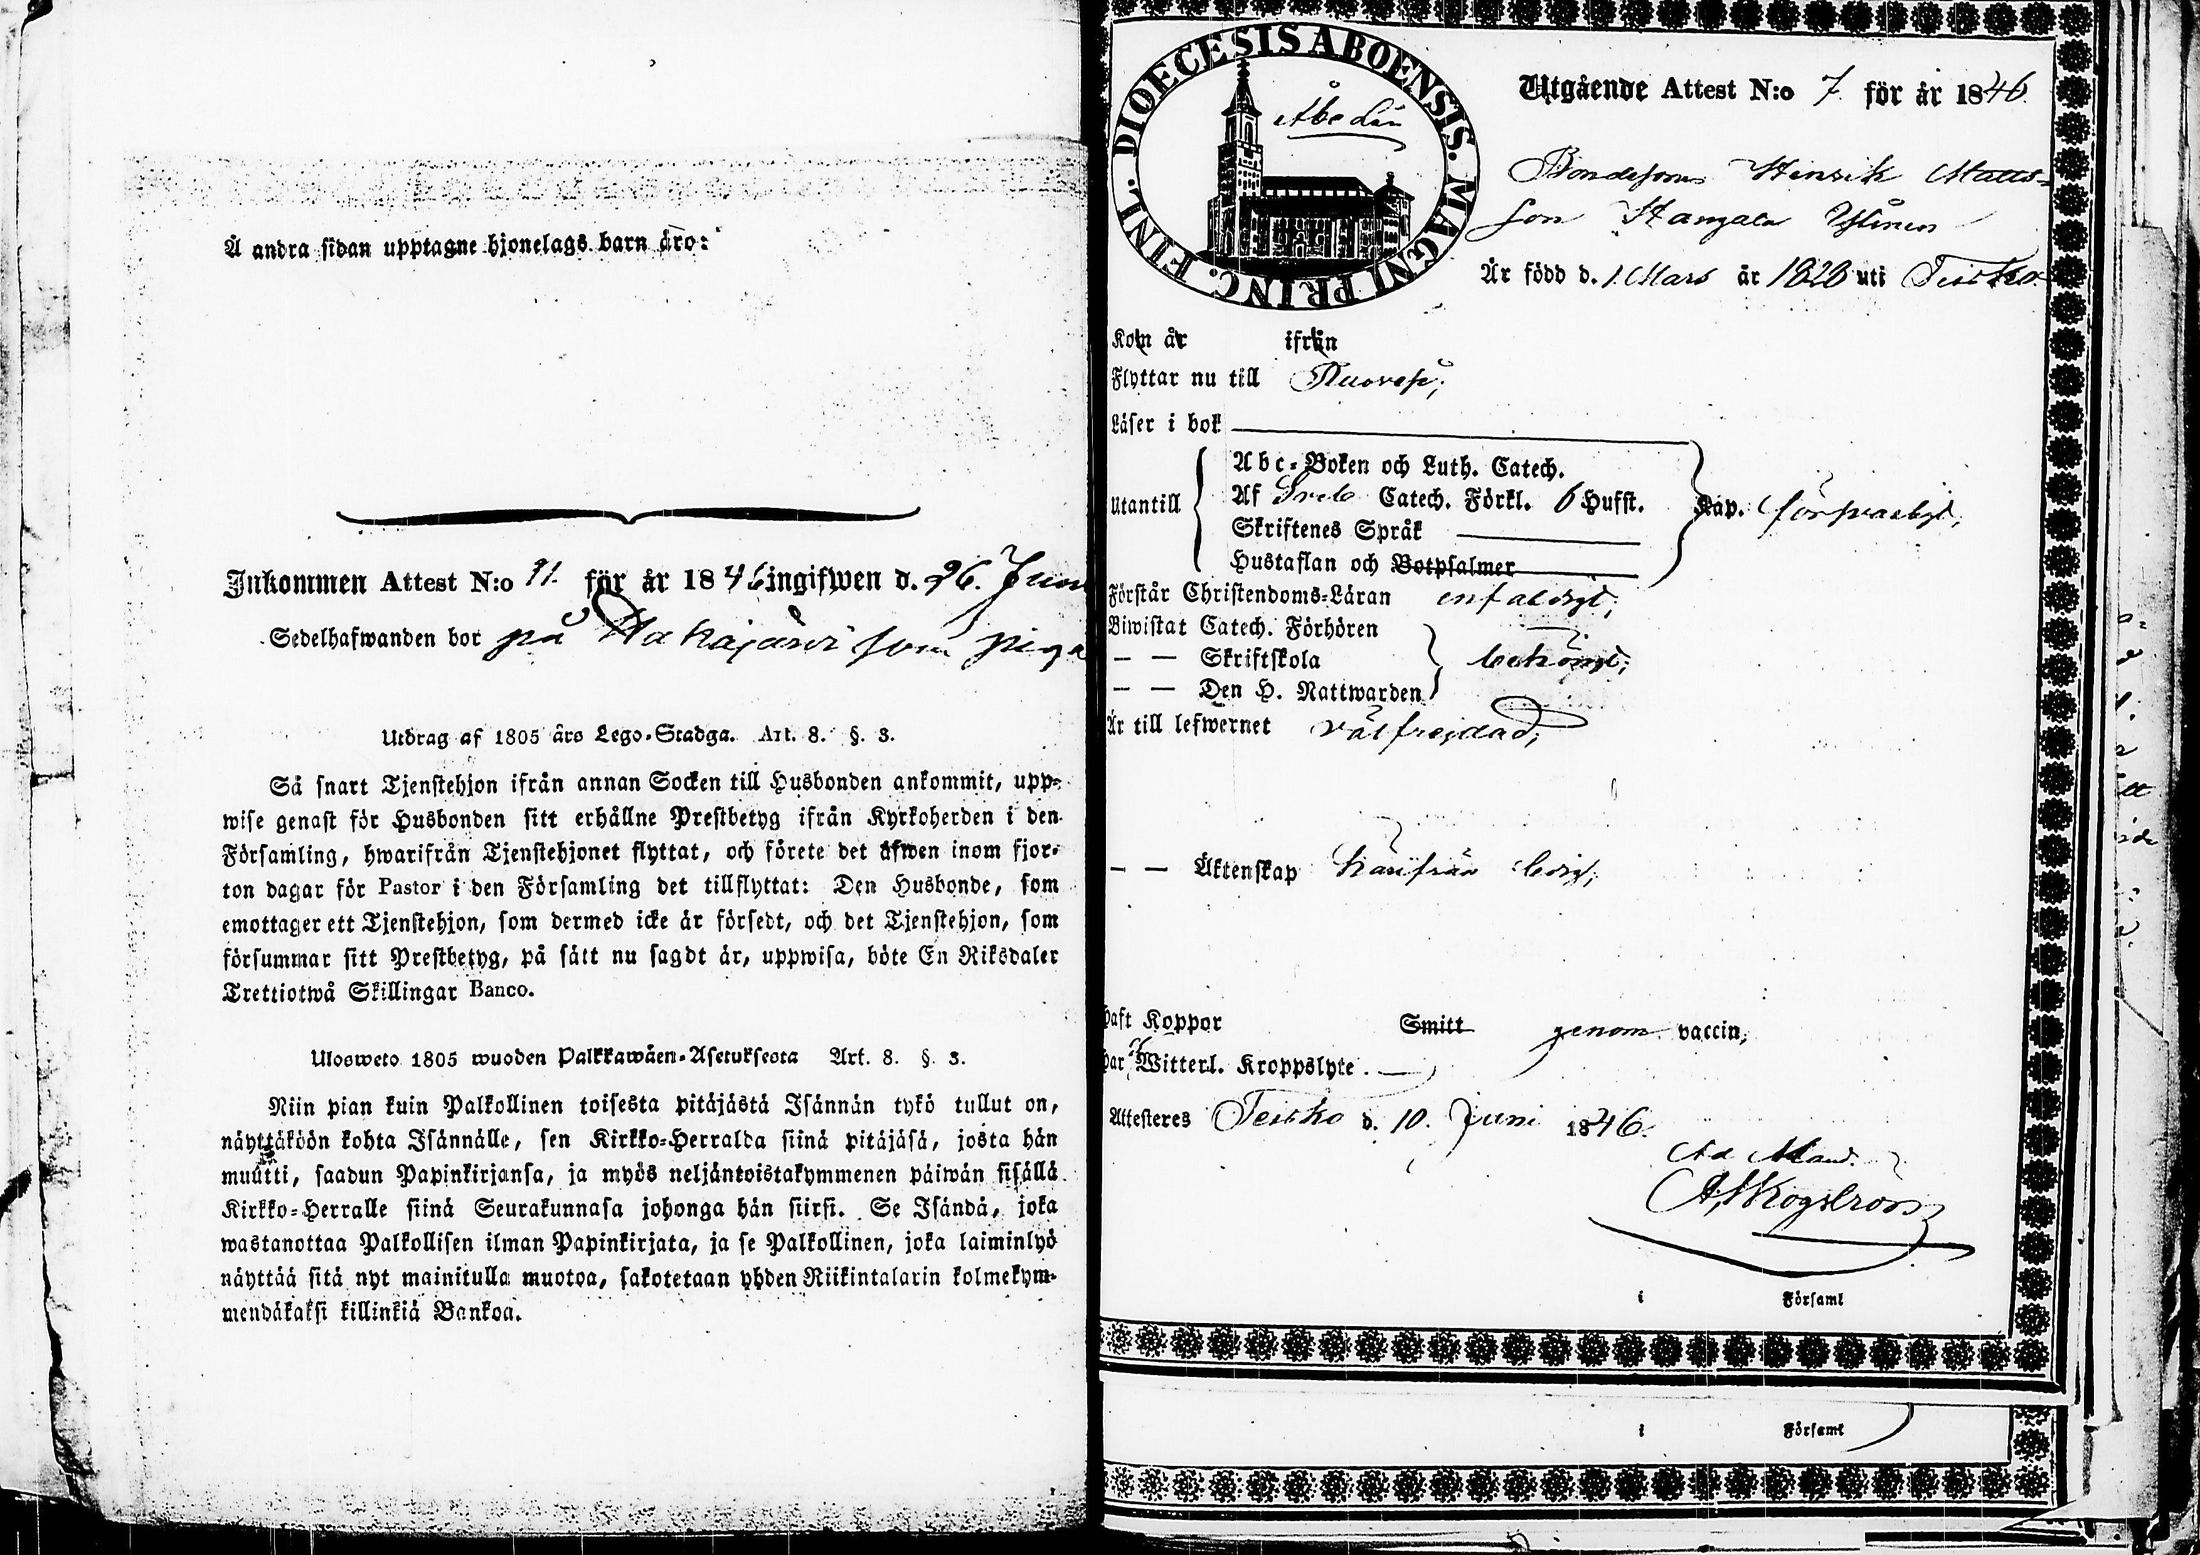 Å andra sidan upptagne hjonelags barn äro:
Inkommen Attest N:o 11. för år 1846 ingifwen d. 26. Juni
Sedelhafwanden bor på Hakajärvi som piga
Utdrag af 1805 års Lego-Stadga. Art. 8. §. 3.
Så snart Tjenstehjon ifrån annan Socken till Husbonden ankommit, upp-
wise genast för Husbonden sitt erhållne Prestbetyg ifrån Kyrkoherden i den
Församling, hwarifrån Tjenstehjonet flyttat, och förete det äfwen inom fjor-
ton dagar för Pastor i den Församling det tillflyttat: Den Husbonde, som
emottager ett Tjenstehjon, som dermed icke är försedt, och det Tjenstehjon, som
försummar sitt Prestbetyg, på sätt nu sagdt är, uppwisa, böte En Riksdaler
Trettiotwå Skillingar Banco.
Ulosweto 1805 wuoden Palkkawäen-Asetuksesta Art. 8. §. 3.
Niin pian kuin Palkollinen toisesta pitäjästä Isännän tykö tullut on,
näyttäköön kohta Isännälle, sen Kirkko-Herralda siinä pitäjäsä, josta hän
muutti, saadun Papinkirjansa, ja myös neljäntoistakymmenen päiwän sisällä
Kirkko-Herralle siinä Seurakunnasa johonga hän siirsi. Se Isändä, joka
wastanottaa Palkollisen ilman Papinkirjata, ja se Palkollinen, joka laiminlyö
näyttää sitä nyt mainitulla muotoa, sakotetaan yhden Riikintalarin kolmekym-
mendäkaksi killinkiä Bankoa.
DIOECESIS ABOENSIS. MAGNI PRINC. FINL.
Åbo Län
Utgående Attest N:o 7. för år 1846.
Bondesonen Hinrik Matts-
son Kangala Ylinen
Är född d. 1 Mars år 1828 uti Teisko.
Kom år ifrån
Flyttar nu till Ruovesi;
Läser i bok
Abc-Boken och Luth. Catech.
Utantill Af Sveb Catech. Förkl. 6 Hufst. Kap. försvarligt;
Skriftenes Språk
Hustaflan och Botpsalmer
Förstår Christendoms-Läran enfaldigt;
Biwistat Catech. Förhören
— — Skriftskola behörigt;
— — Den H. Nattwarden
Är till lefwernet välfrejdad;
— — Äktenskap härifrån ledig;
haft Koppor Smitt genom vaccin,
har Witterl. Kroppslyte.
Attesteres Teisko d. 10. Juni 1846.
Ad Mand.
A. Skogström
i Församl
i Församl